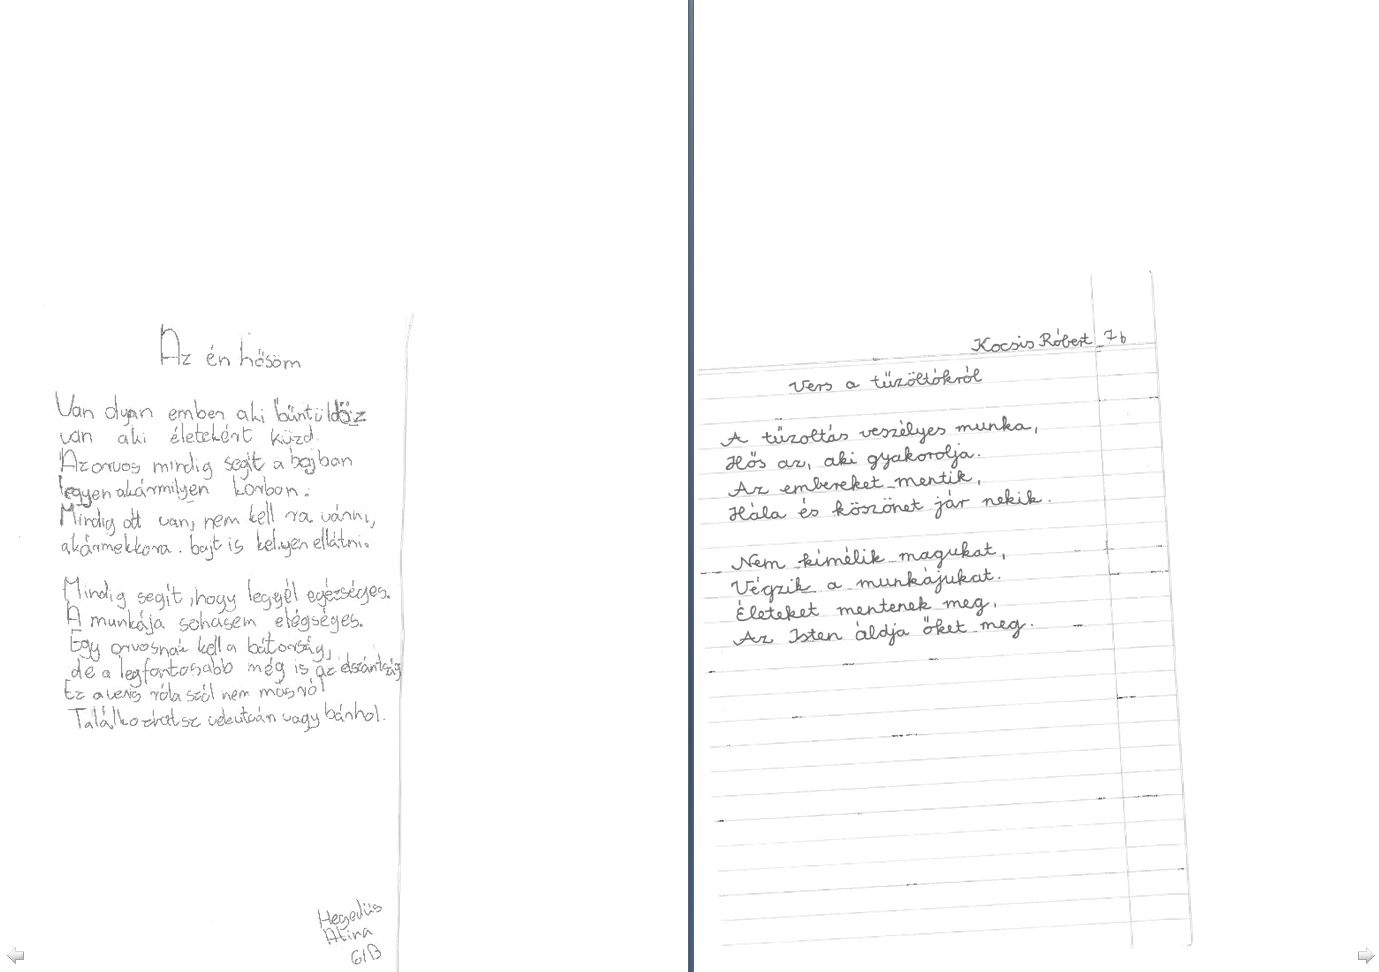 Az én hősöm
Van olyan emben aki bűntüldöz
van aki életekért küzd.
Az orvos mindig segít a bajban
legyen akármilyen korban.
Mindig ott van, nem kell rá várni,
akármekkora bajt is kelyen ellátni.
Mindig segít, hogy leggyél egészséges.
A munkája sohasem elégséges.
Egy orvosnak kell a bátorság,
de a legfontosabb még is az elszántság
Ez a vers róla szól nem másról
Találkozhatsz vele utcán vagy bárhol.
Hegedüs
Atina
6/B
Kocsis Róbert 7b
Vers a tűzöltókról
A tűzoltás veszélyes munka,
Hős az, aki gyakorolja.
Az embereket mentik,
Hála és köszönet jár nekik.
Nem kímélik magukat,
Végzik a munkájukat.
Életeket mentenek meg,
Az Isten áldja őket meg.